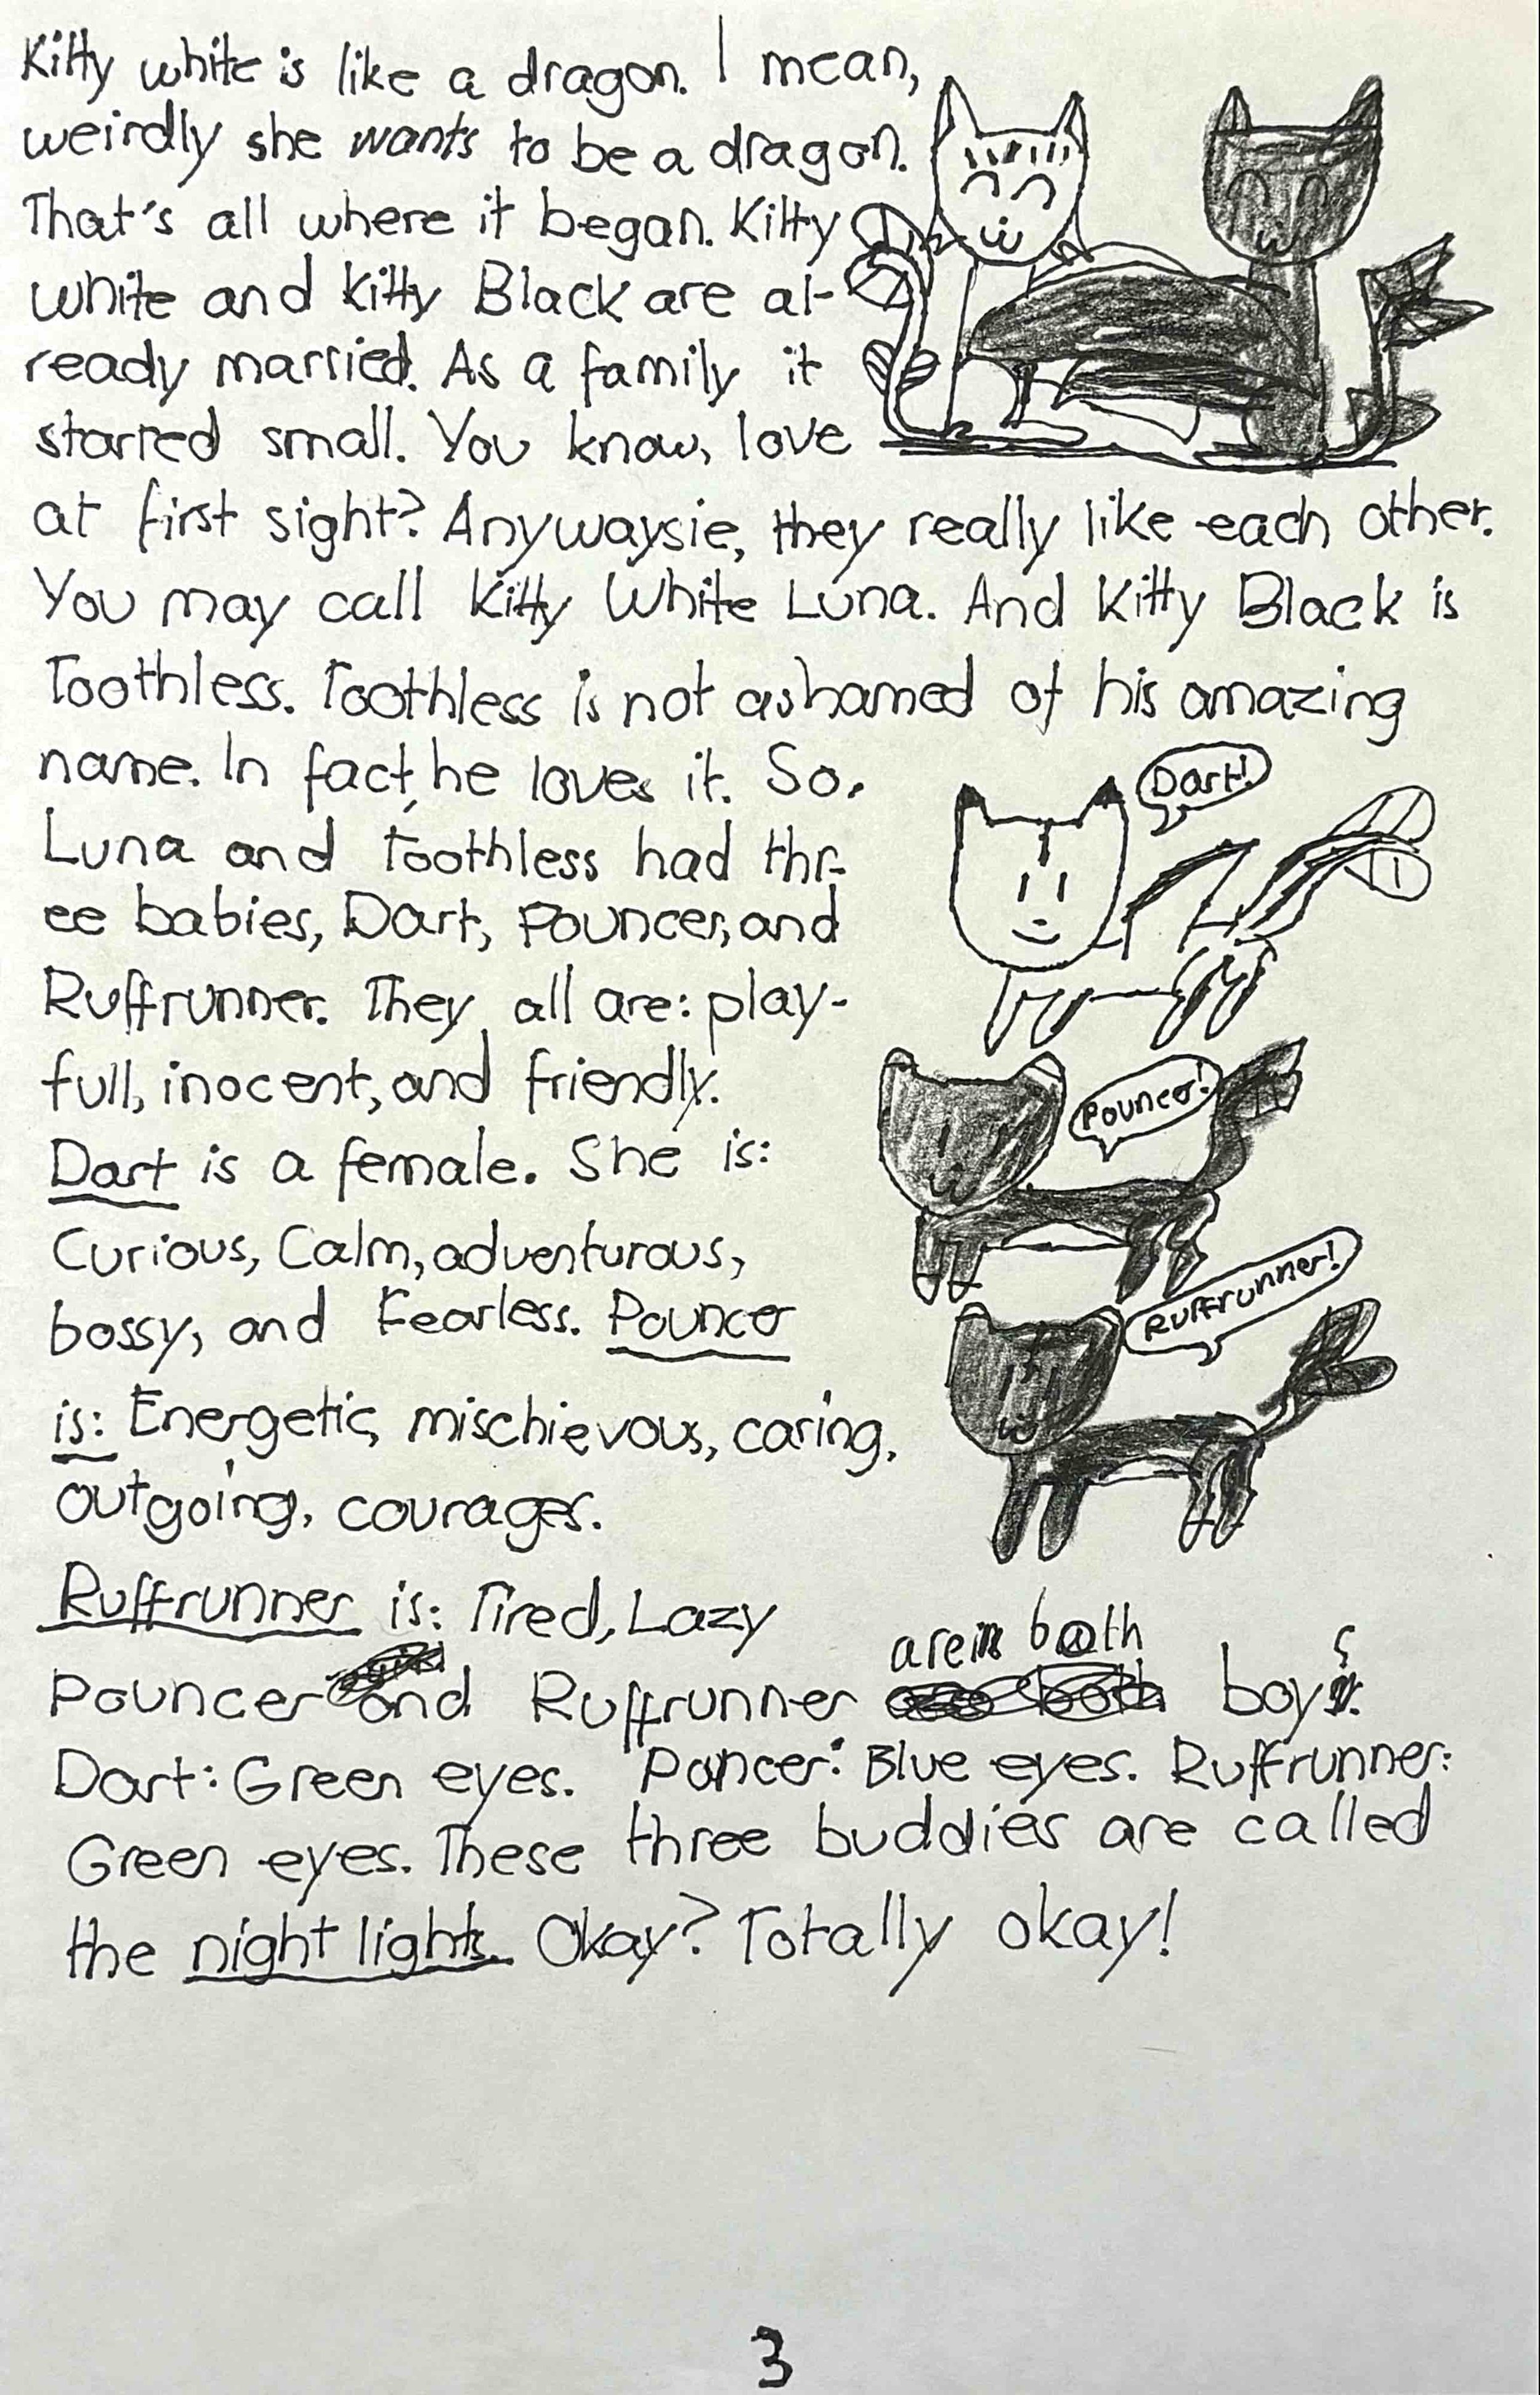 Kitty white is like a dragon. I mean,
weirdly she wants to be a dragon.
That's all where it began. Kitty
white and Kitty Black are al-
ready married. As a family it
starred small. You know, love
at first sight? Anywaysie, they really like each other.
You may call Kitty White Luna. And Kitty Black is
Toothless. Toothless is not ashamed of his amazing
name. In fact, he loves it. So,
Dart!
Luna and Toothless had thr-
ee babies, Dart, Pouncer, and
Ruffrunner. They all are: play-
full, inocent, and friendly.
Pouncer!
Dart is a female. She is:
Curious, Calm, adventurous,
Ruffrunner!
bossy, and Fearless. Pouncer
is: Energetic, mischievous, caring,
outgoing, courages.
Ruffrunner is: Tired, Lazy
Pouncer and Ruffrunner are both boys.
Dart: Green eyes. Poncer: Blue eyes. Ruffrunner:
Green eyes. These three buddies are called
the night lights. Okay? Totally okay!
3